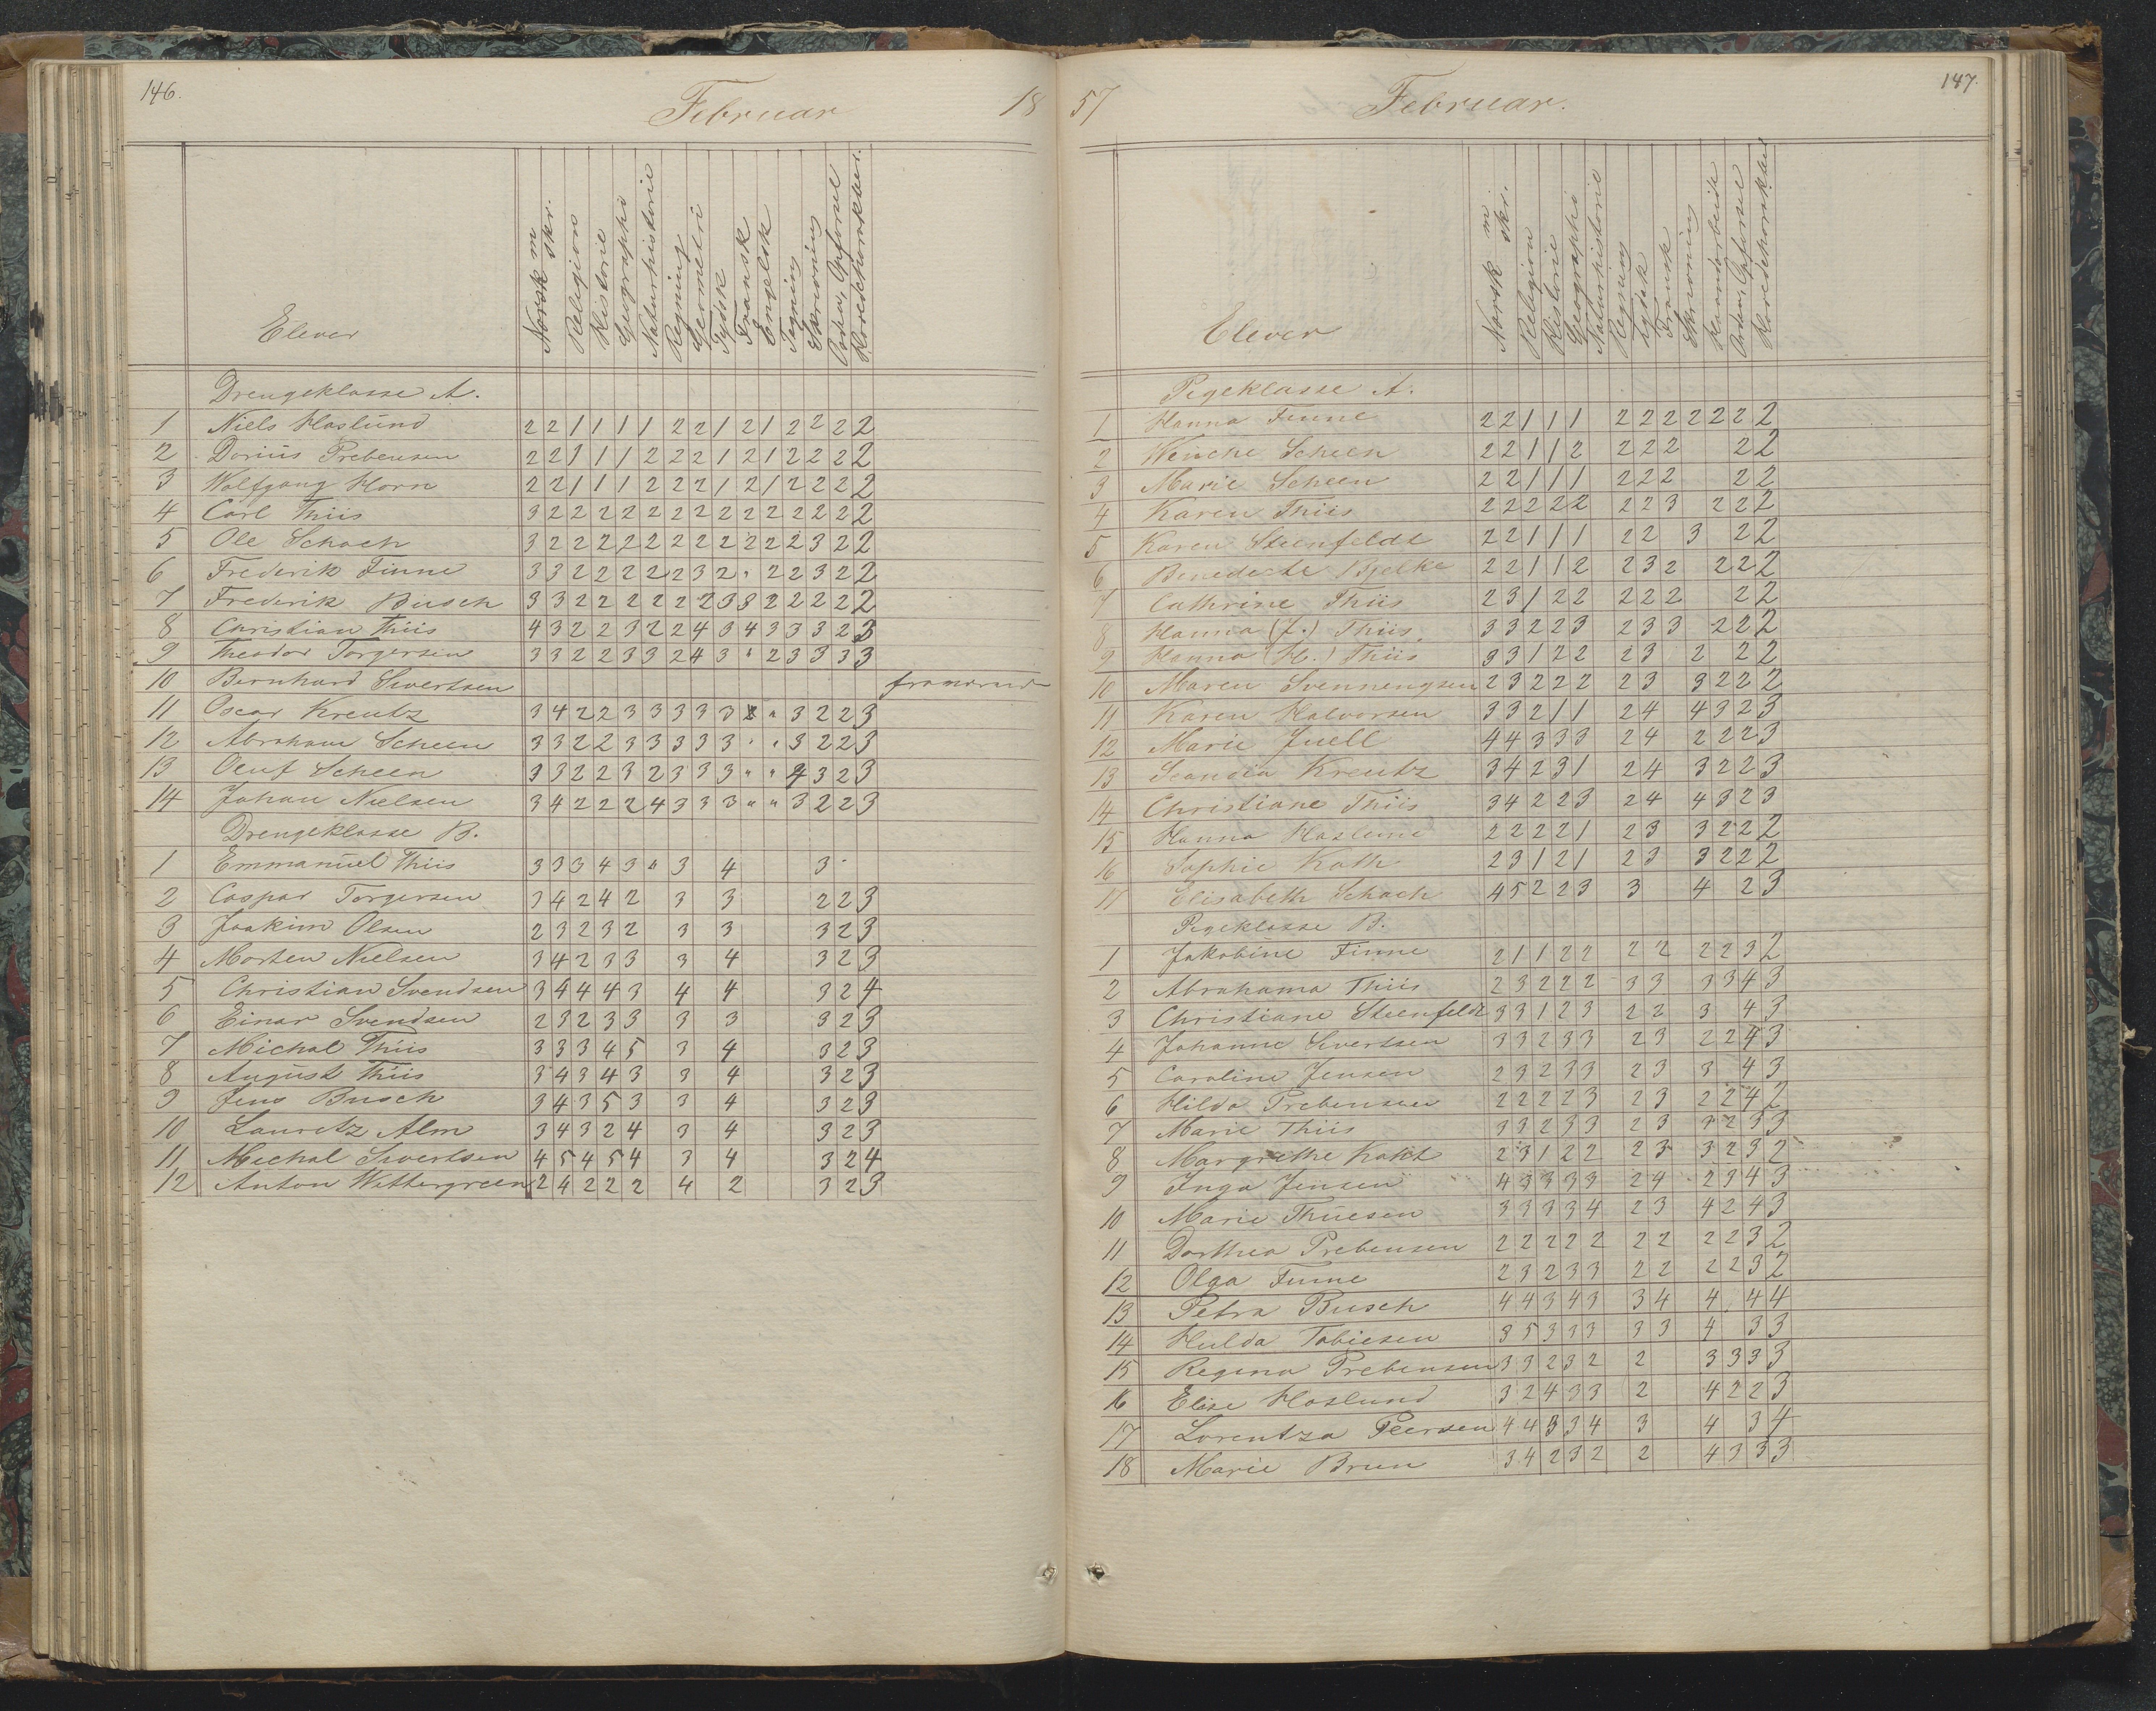 146.
Februar 18
Elever
Norsk m skr.
Religion
Historie
Geographi
Naturhistorie
Regning
Geometri
Tydsk
Fransk
Engelsk
Tegning
Skrivning
Orden, Opførsel
Hovedcharakter.
Drengeklasse A.
1 Niels Haslund 2 2 1 1 1 1 2 2 1 2 1 2 2 2 2
2 Darius Prebensen 2 2 1 1 1 2 2 2 1 2 1 2 2 2 2
3 Wolfgang Horn 2 2 1 1 1 2 2 2 1 2 1 2 2 2 2
4 Carl Thiis 3 2 2 2 2 2 2 2 2 2 2 2 2 2 2
5 Ole Schach 3 2 2 2 2 2 2 2 2 2 2 2 3 2 2
6 Frederik Finne 3 3 2 2 2 2 2 3 2 " 2 2 3 2 2
7 Frederik Busch 3 3 2 2 2 2 2 2 3 3 2 2 2 2 2
8 Christian Thiis 4 3 2 2 3 2 2 4 3 4 3 3 3 2 3
9 Theodor Torgersen 3 3 2 2 3 3 2 4 3 " 2 3 3 3 3
10 Bernhard Sivertsen fraværende
11 Oscar Kreutz 3 4 2 2 3 3 3 3 3 " 3 2 2 3
12 Abraham Scheen 3 3 2 2 3 3 3 3 3 " " 3 2 2 3
13 Oluf Scheen 3 3 2 2 3 2 3 3 3 " " 4 3 2 3
14 Johan Nielsen 3 4 2 2 2 4 3 3 3 " " 3 2 2 3
Drengeklasse B.
1 Emmanuel Thiis 3 3 3 4 3 " 3 4 3
2 Caspar Torgersen 3 4 2 4 2 3 3 2 2 3
3 Joakim Olsen 2 3 2 3 2 3 3 3 2 3
4 Morten Nielsen 3 4 2 3 3 3 4 3 2 3
5 Christian Svendsen 3 4 4 4 3 4 4 3 2 4
6 Einar Svendsen 2 3 2 3 3 3 3 3 2 3
7 Michal Thiis 3 3 3 4 5 3 4 3 2 3
8 August Thiis 3 4 3 4 3 3 4 3 2 3
9 Jens Busch 3 4 3 5 3 3 4 3 2 3
10 Lauretz Alm 3 4 3 2 4 3 4 3 2 3
11 Michal Sivertsen 4 5 4 5 4 3 4 3 2 4
12 Anton Wettergreen 2 4 2 2 2 4 2 3 2 3
147.
57 Februar.
Elever
Norsk m skr.
Religion
Historie
Geographi
Naturhistorie
Regning
Tydsk
Fransk
Skrivning
Haandarbeide
Orden, Opførsel
Hovedcharakter
Pigeklasse A.
1 Hanna Finne 2 2 1 1 1 2 2 2 2 2 2 2
2 Wenche Scheen 2 2 1 1 2 2 2 2 2 2
3 Marie Scheen 2 2 1 1 1 2 2 2 2 2
4 Karen Thiis 2 2 2 2 2 2 2 3 2 2 2
5 Karen Steenfeldt 2 2 1 1 1 2 2 3 2 2
6 Benedecte Bjelke 2 2 1 1 2 2 3 2 2 2 2
7 Cathrine Thiis 2 3 1 2 2 2 2 2 2 2
8 Hanna (J.) Thiis 3 3 2 2 3 2 3 3 2 2 2
9 Hanna (H.) Thiis 3 3 1 2 2 2 3 2 2 2
10 Maren Svennengsen 2 3 2 2 2 2 3 3 2 2 2
11 Karen Halvorsen 3 3 2 1 1 2 4 4 3 2 3
12 Marie Juell 4 4 3 3 3 2 4 2 2 2 3
13 Kreutz 3 4 2 3 1 2 4 3 2 2 3
14 Christiane Thiis 3 4 2 2 3 2 4 4 3 2 3
15 Hanna Haslund 2 2 2 2 1 2 3 3 2 2 2
16 Sophie Kath 2 3 1 2 1 2 3 3 2 2 2
17 Elisabeth Schach 4 5 2 2 3 3 4 2 3
Pigeklasse B.
1 Jakobine Finne 2 1 1 2 2 2 2 2 2 3 2
2 Abrahama Thiis 2 3 2 2 2 3 3 3 3 4 3
3 Christiane Steenfeldt 3 3 1 2 3 2 2 3 4 3
4 Johanne Sivertsen 3 3 2 3 3 2 3 2 2 4 3
5 Caroline Jensen 2 3 2 3 3 2 3 3 4 3
6 Hilda Prebensen 2 2 2 2 3 2 3 2 2 4 2
7 Marie Thiis 3 3 2 3 3 2 3 3 2 3 3
8 Margrethe Kaht 2 3 1 2 2 2 3 3 2 3 2
9 Inga Jensen 4 3 3 3 3 2 4 2 3 4 3
10 Marie Thuesen 3 3 3 3 4 2 3 4 2 4 3
11 Dorthea Prebensen 2 2 2 2 2 2 2 2 2 3 2
12 Olga Finne 2 3 2 3 3 2 2 2 2 3 2
13 Petra Busch 4 4 3 4 3 3 4 4 4 4
14 Hulda Tobiesen 3 5 3 3 3 3 3 4 3 3
15 Regina Prebensen 3 3 2 3 2 2 3 3 3 3
16 Elise Haslund 3 2 4 3 3 2 4 2 2 3
17 Lorentza Peersen 4 4 3 3 4 3 4 3 4
18 Marie Brun 3 4 2 3 2 2 4 3 3 3